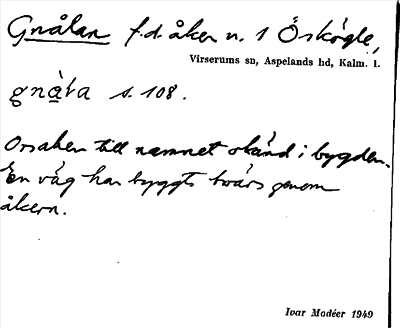 Gnålan f.d. åker n. 1 Öskögle,
Virserums sn, Aspelands hd, Kalm. l.
s. 108.
Orsaken till namnet okänd i bygden.
En väg har byggts tvärs genom
åkern.
Ivar Modéer 1949